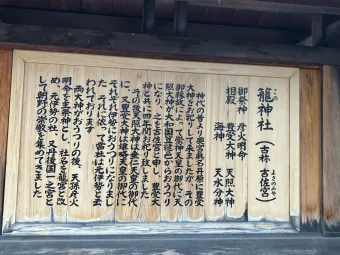 このじんじゃ
籠神社（古称 吉佐宮）
よさのみや
御祭神 彦火明命
相殿 豊受大神 天照大神
海神 天水分神
神代の昔より奥宮眞名井原に豊受
大神をお祀りして来ましたが、その
御縁故によって崇神天皇の御代に天
照大神が大和国笠縫邑からおうつり
になり、之を吉佐宮と申し、豊受大
神と共に四年間お祀り致しました。
その後天照大神は垂仁天皇の御代
に、又豊受大神は雄略天皇の御代に
それぞれ伊勢におうつりになりまし
た。それに依って當社は元伊勢と云
われております。
両大神がおうつりの後、天孫彦火
明命を主祭神とし、社名を籠宮と改
め、元伊勢の社、又丹後国一之宮と
して朝野の崇敬を集めてきました。